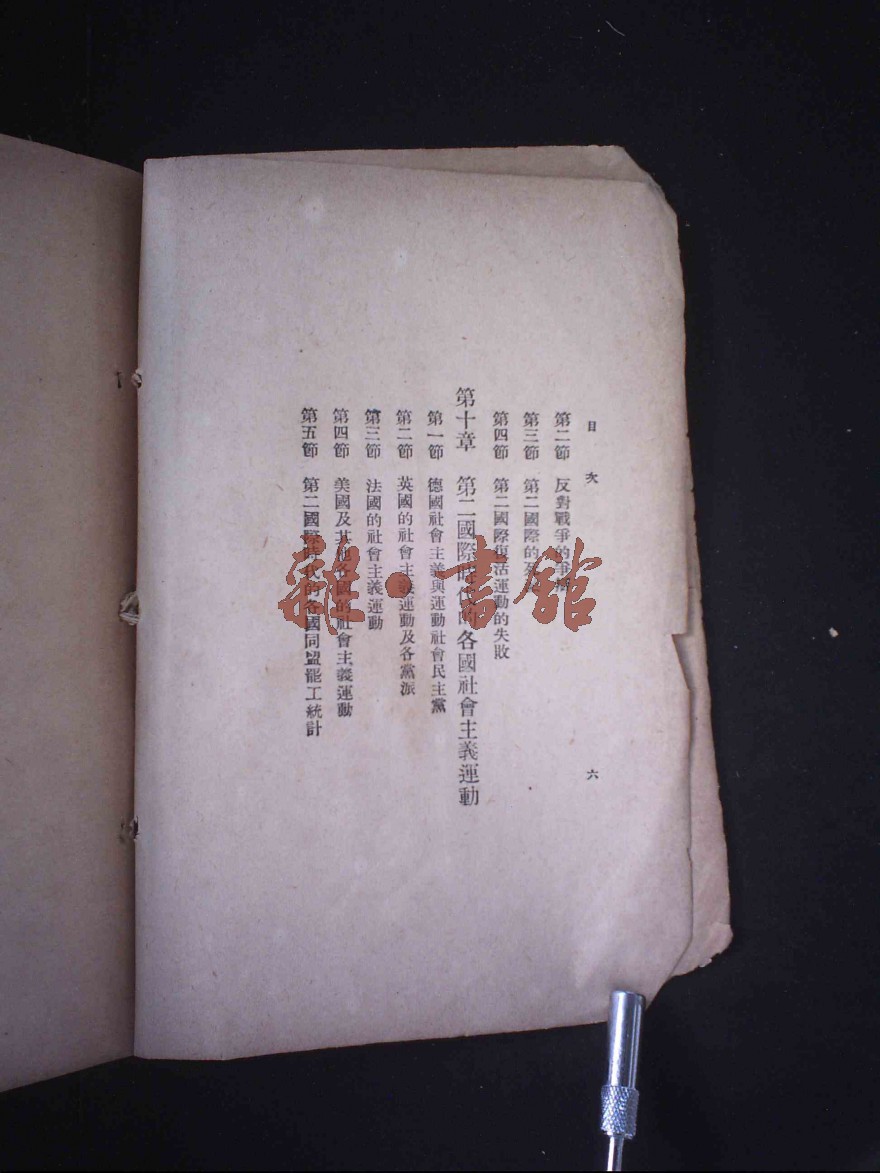 目次
六
第二節 反對戰爭的爭
第三節 第二國際的死
第四節 第二國際復活運動的失敗
第十章 第二國際時代的各國社會主義運動
第一節 德國社會主義與運動社會民主黨
第二節 英國的社會主義運動及各黨派
第三節 法國的社會主義運動
第四節 美國及其他各國的社會主義運動
第五節 第二國際時代的各國同盟罷工統計
雜·書館